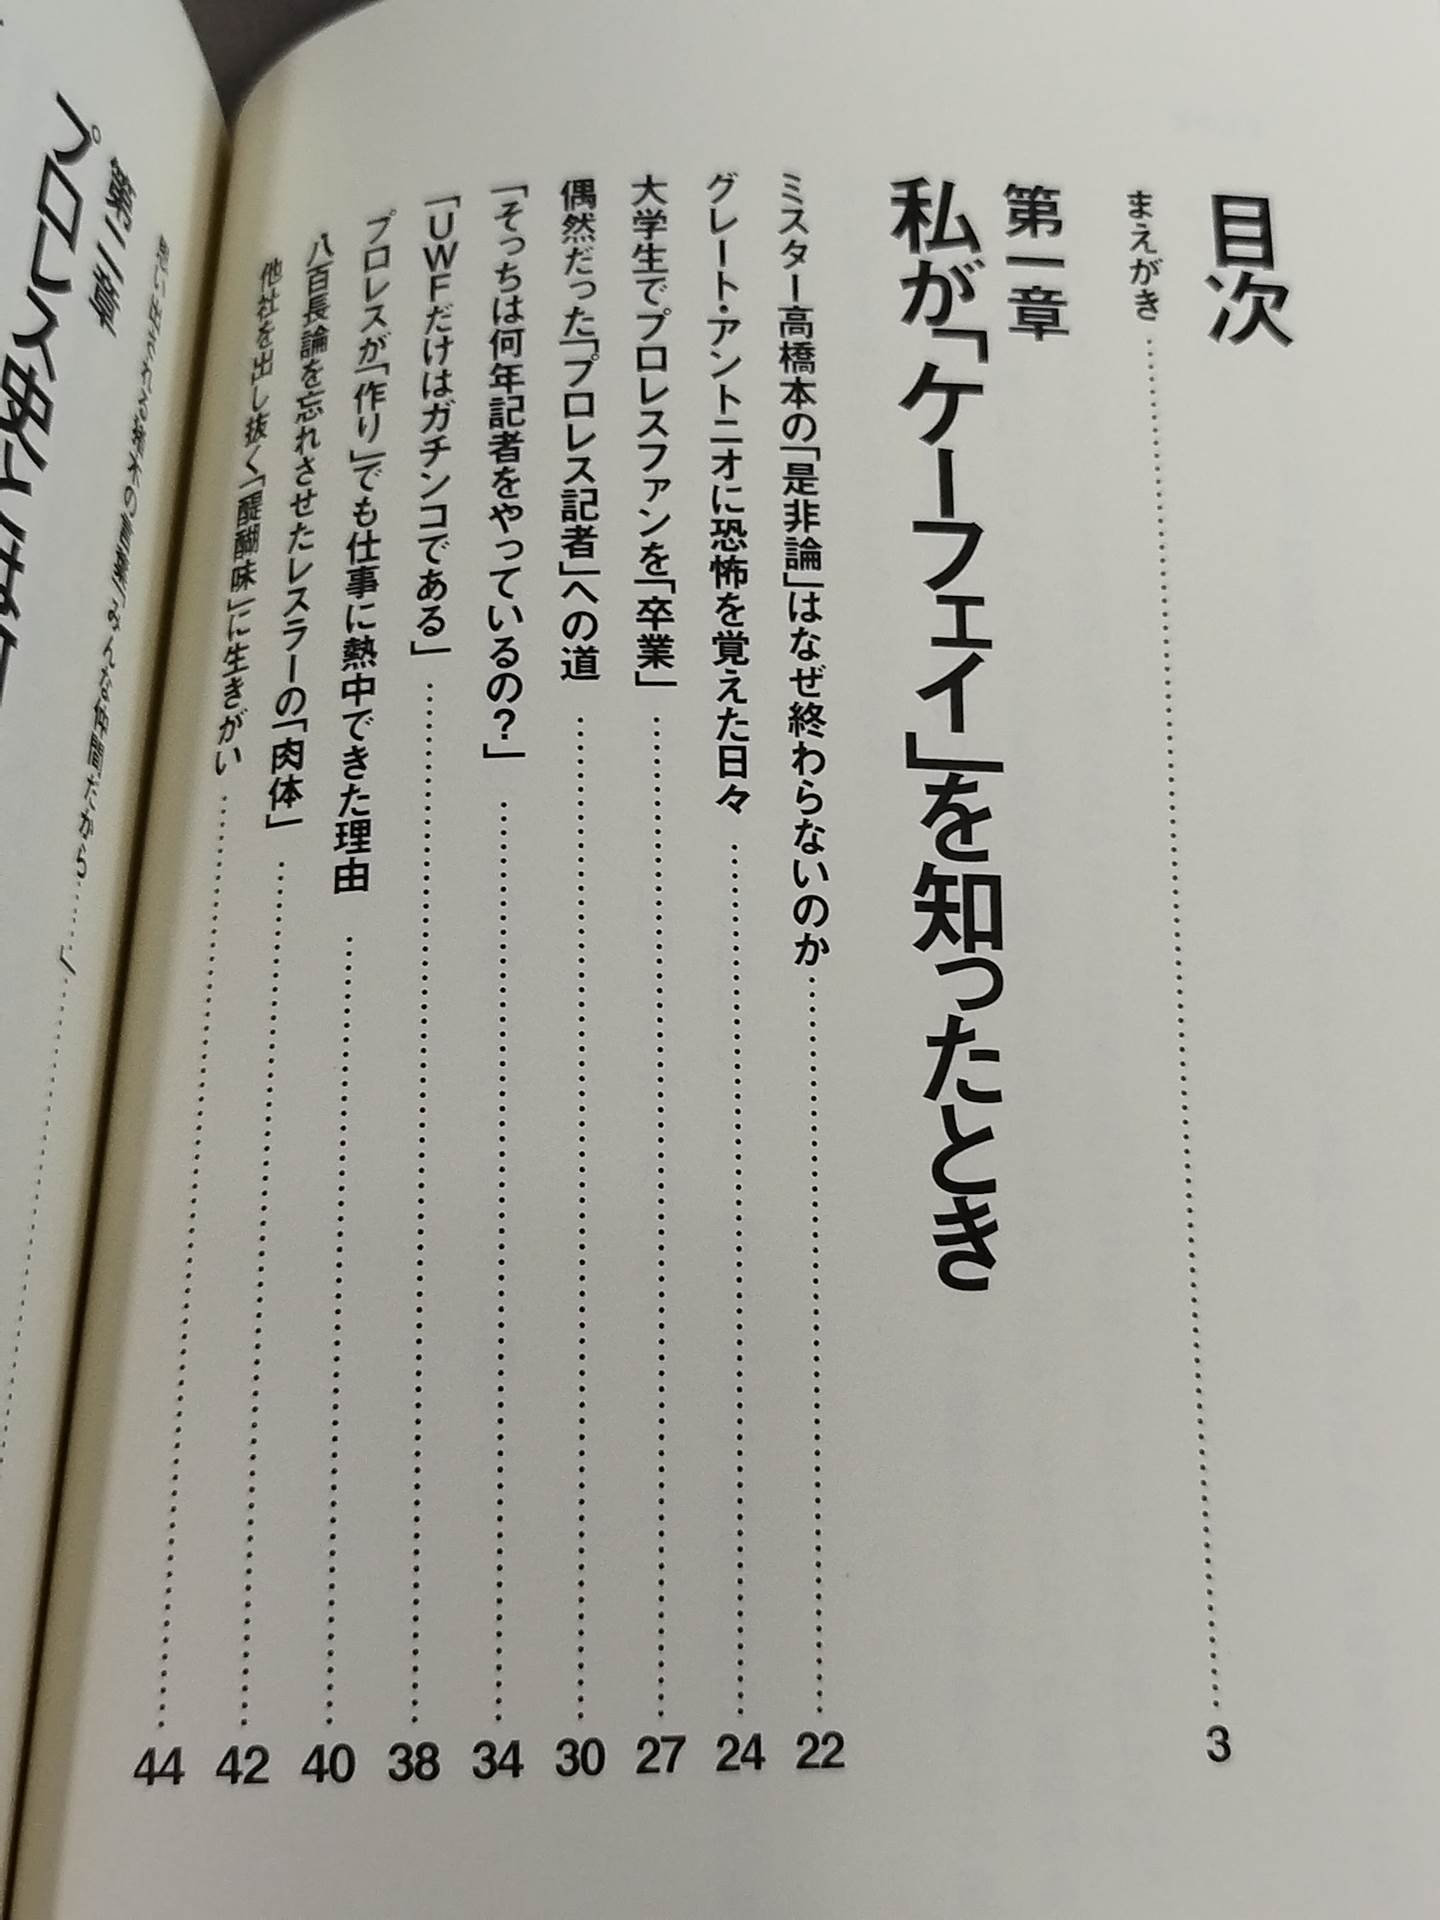 目次
まえがき 3
第一章
私が「ケーフェイ」を知ったとき
ミスター高橋本の「是非論」はなぜ終わらないのか 22
グレート・アントニオに恐怖を覚えた日々 24
大学生でプロレスファンを「卒業」 27
偶然だった「プロレス記者」への道 30
「そっちは何年記者をやっているの?」 34
「UWFだけはガチンコである」 38
プロレスが「作り」でも仕事に熱中できた理由 40
八百長論を忘れさせたレスラーの「肉体」 42
他社を出し抜く「醍醐味」に生きがい 44
第二章
プロレス史とは
思い出される猪木の言葉「みんな仲間だから……」